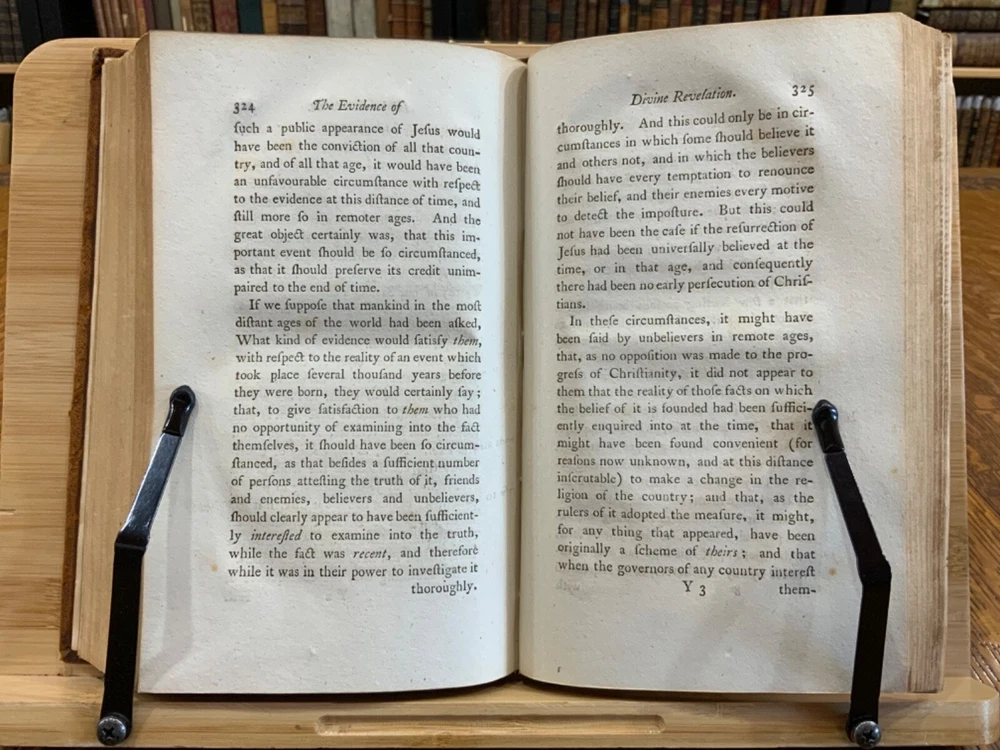 324 The Evidence of
ſuch a public appearance of Jeſus would
have been the conviction of all that coun-
try, and of all that age, it would have been
an unfavourable circumſtance with reſpect
to the evidence at this diſtance of time, and
ſtill more ſo in remoter ages. And the
great object certainly was, that this im-
portant event ſhould be ſo circumſtanced,
as that it ſhould preſerve its credit unim-
paired to the end of time.
If we ſuppoſe that mankind in the moſt
diſtant ages of the world had been aſked,
What kind of evidence would ſatisfy them,
with reſpect to the reality of an event which
took place ſeveral thouſand years before
they were born, they would certainly ſay;
that, to give ſatisfaction to them who had
no opportunity of examining into the fact
themſelves, it ſhould have been ſo circum-
ſtanced, as that beſides a ſufficient number
of perſons atteſting the truth of it, friends
and enemies, believers and unbelievers,
ſhould clearly appear to have been ſufficient-
ly intereſted to examine into the truth,
while the fact was recent, and therefore
while it was in their power to inveſtigate it
thoroughly.
Divine Revelation. 325
thoroughly. And this could only be in cir-
cumſtances in which ſome ſhould believe it
and others not, and in which the believers
ſhould have every temptation to renounce
their belief, and their enemies every motive
to detect the impoſture. But this could
not have been the caſe if the reſurrection of
Jeſus had been univerſally believed at the
time, or in that age, and conſequently
there had been no early perſecution of Chriſ-
tians.
In theſe circumſtances, it might have
been ſaid by unbelievers in remote ages,
that, as no oppoſition was made to the pro-
greſs of Chriſtianity, it did not appear to
them that the reality of thoſe facts on which
the belief of it is founded had been ſuffici-
ently enquired into at the time, that it
might have been found convenient (for
reaſons now unknown, and at this diſtance
inſcrutable) to make a change in the re-
ligion of the country; and that, as the
rulers of it adopted the meaſure, it might,
for any thing that appeared, have been
originally a ſcheme of theirs; and that
when the governors of any country intereſt
Y 3 them-